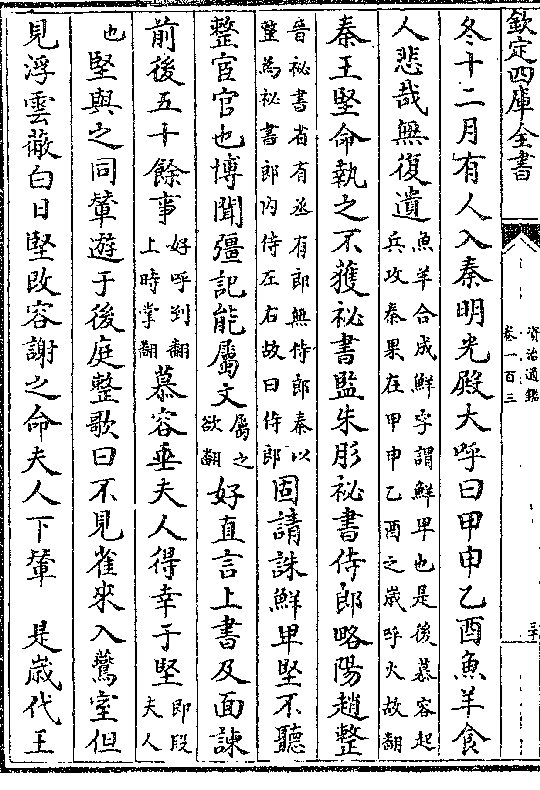 欽定四庫全書
資治通鑑
卷一百三
冬十二月有人入秦明光殿大呼曰甲申乙酉魚羊食
人悲哉無復遺魚羊合成鮮字謂鮮卑也是後慕容起兵攻秦果在甲申乙酉之歲呼火故翻
秦王堅命執之不獲祕書監朱肜祕書侍郎略陽趙整
晉祕書省有丞有郎無侍郎秦以整為祕書郎内侍左右故曰侍郎固請誅鮮卑堅不聽
整宦官也博聞彊記能屬文屬之欲翻好直言上書及面諫
前後五十餘事好呼到翻上時掌翻慕容垂夫人得幸于堅即段夫人
也堅與之同輦遊于後庭整歌曰不見雀來入鷰室但
見浮雲蔽白日堅改容謝之命夫人下輦　是歲代王